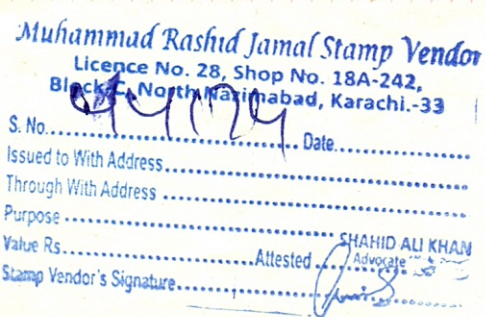 Muhammad Rashid Jamal Stamp Vendor
Licence No. 28, Shop No. 18A-242,
Block-C, North Nazimabad, Karachi.-33
S. No. Date
Issued to With Address
Through With Address
Purpose
SHAHID ALI KHAN
Value Rs. Attested Advocate
Stamp Vendor's Signature